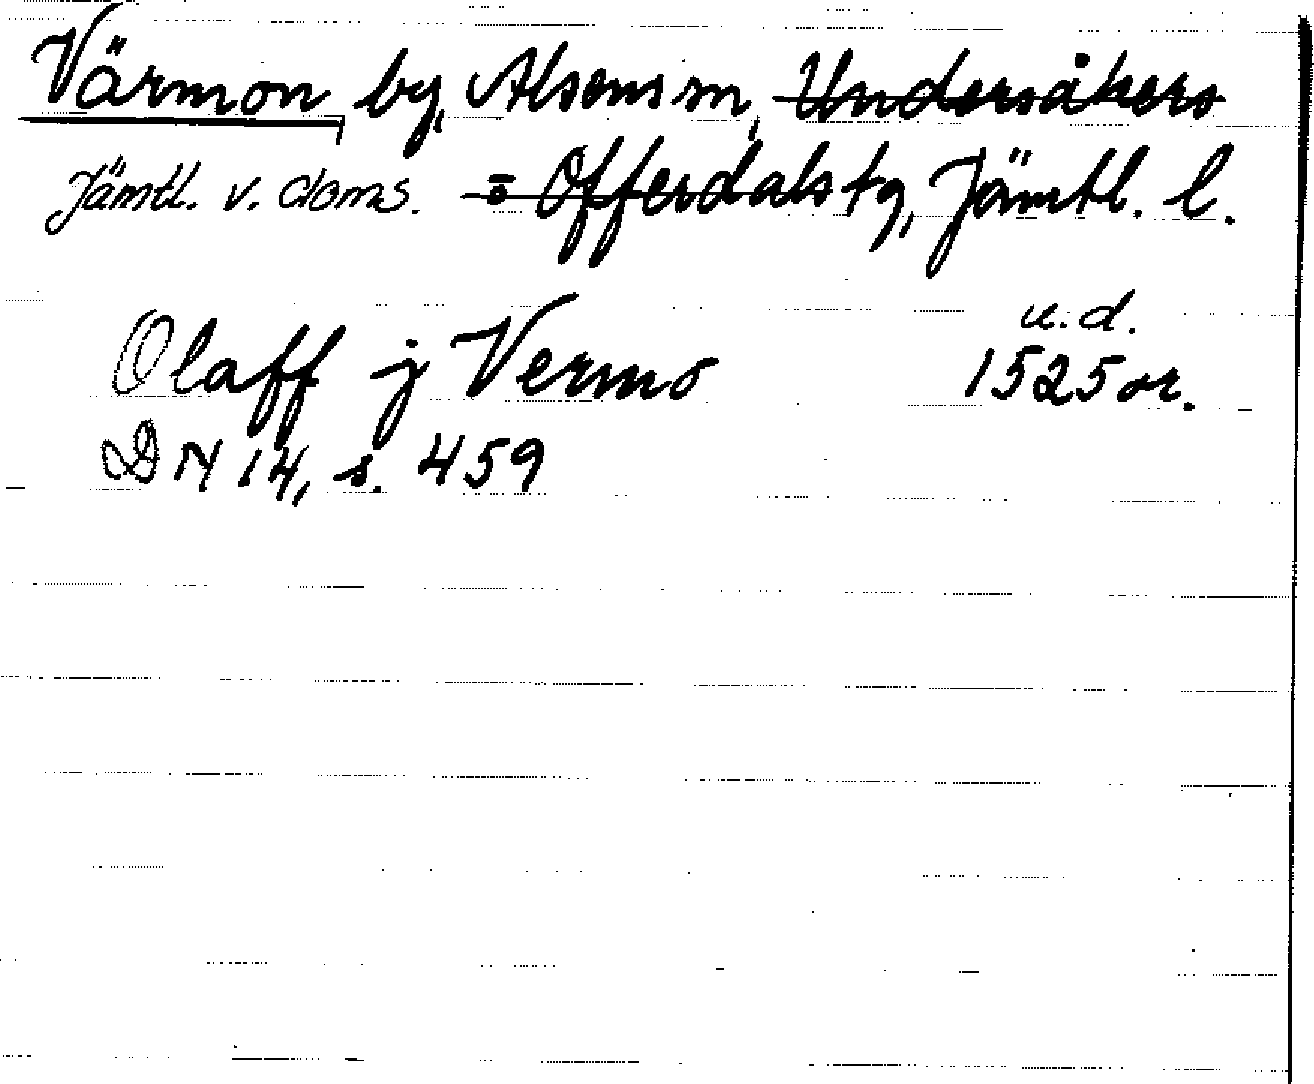 Värmon by, Alsens sn, Undersåkers
Jämtl. v. doms. o Offerdals tg, Jämtl. l.
u. d.
Olaff j Vermo 1525 or.
DN 14, s. 459